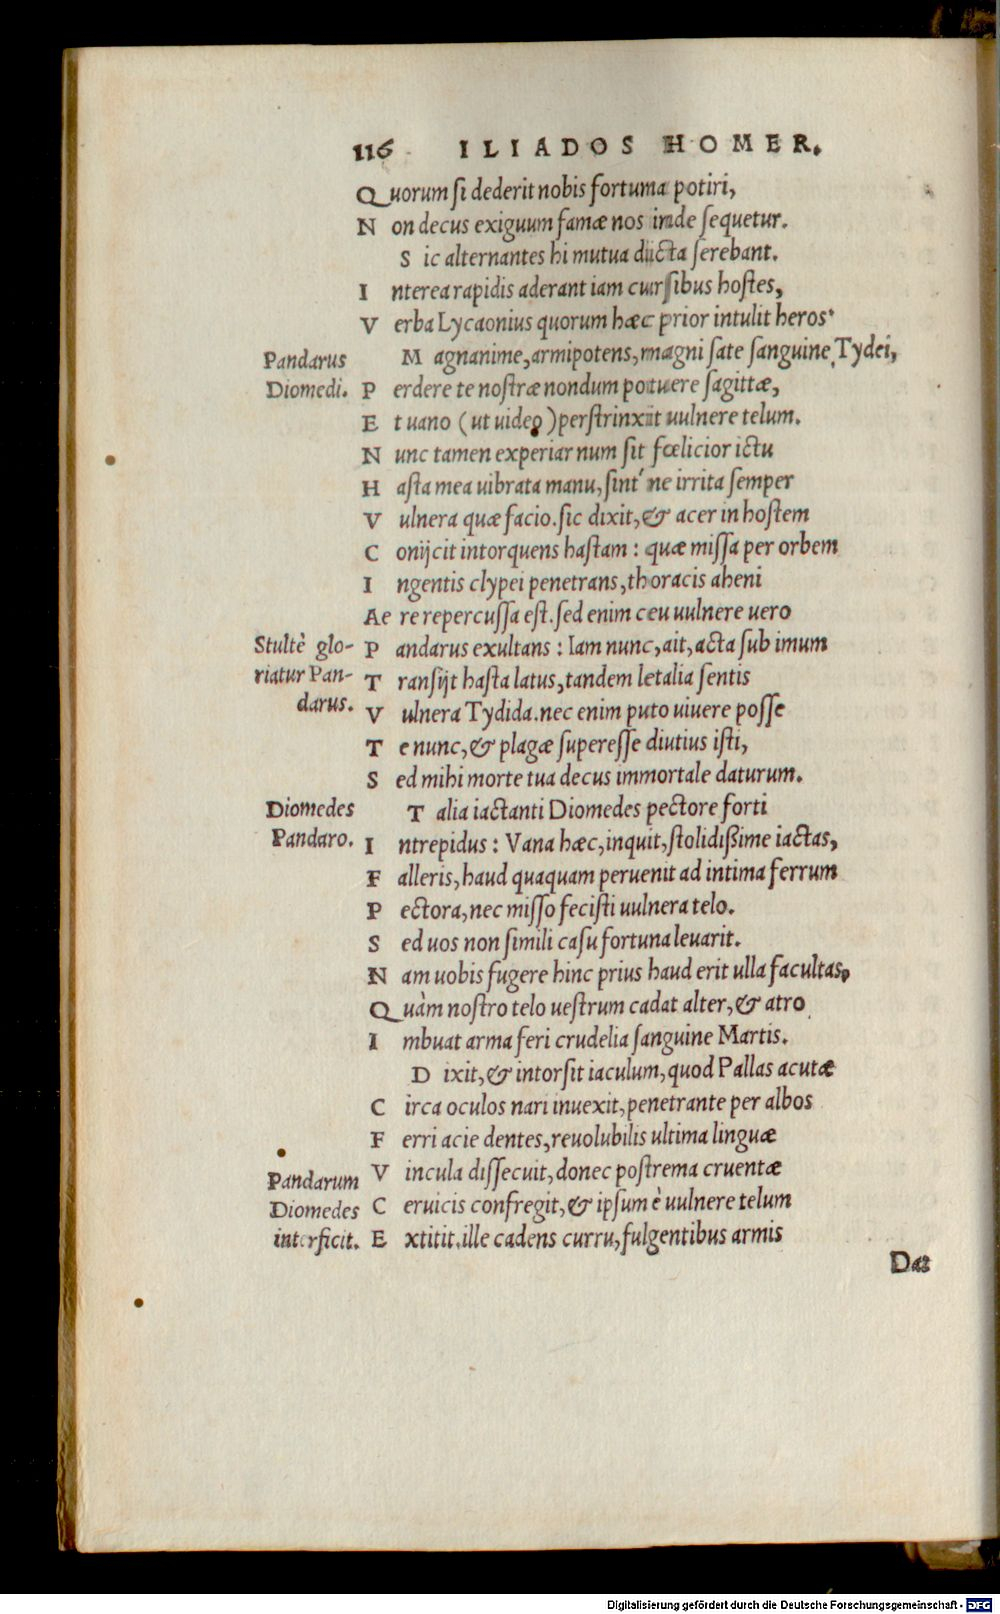 116 ILIADOS HOMER.
Quorum si dederit nobis fortuma potiri,
Non decus exiguum famæ nos inde sequetur.
Sic alternantes hi mutua dicta serebant.
Interea rapidis aderant iam cursibus hostes,
Verba Lycaonius quorum hæc prior intulit heros.
Pandarus Magnanime, armipotens, magni sate sanguine Tydei,
Diomedi. Perdere te nostræ nondum potuere sagittæ,
Et uano (ut uideo) perstrinxit uulnere telum.
Nunc tamen experiar num sit fœlicior ictu
Hasta mea uibrata manu, sint' ne irrita semper
Vulnera quæ facio. sic dixit, & acer in hostem
Conijcit intorquens hastam: quæ missa per orbem
Ingentis clypei penetrans, thoracis aheni
Aere repercussa est. sed enim ceu uulnere uero
Stultè glo- Pandarus exultans: Iam nunc, ait, acta sub imum
riatur Pan- Transijt hasta latus, tandem letalia sentis
darus. Vulnera Tydida. nec enim puto uiuere posse
Te nunc, & plagæ superesse diutius isti,
Sed mihi morte tua decus immortale daturum.
Diomedes Talia iactanti Diomedes pectore forti
Pandaro. Intrepidus: Vana hæc, inquit, stolidißime iactas,
Falleris, haud quaquam peruenit ad intima ferrum
Pectora, nec misso fecisti uulnera telo.
Sed uos non simili casu fortuna leuarit.
Nam uobis fugere hinc prius haud erit ulla facultas,
Quàm nostro telo uestrum cadat alter, & atro
Imbuat arma feri crudelia sanguine Martis.
Dixit, & intorsit iaculum, quod Pallas acutæ
Circa oculos nari inuexit, penetrante per albos
Ferri acie dentes, reuolubilis ultima linguæ
Pandarum Vincula dissecuit, donec postrema cruentæ
Diomedes Ceruicis confregit, & ipsum è uulnere telum
interficit. Extitit. ille cadens curru, fulgentibus armis
Digitalisierung gefördert durch die Deutsche Forschungsgemeinschaft - DFG